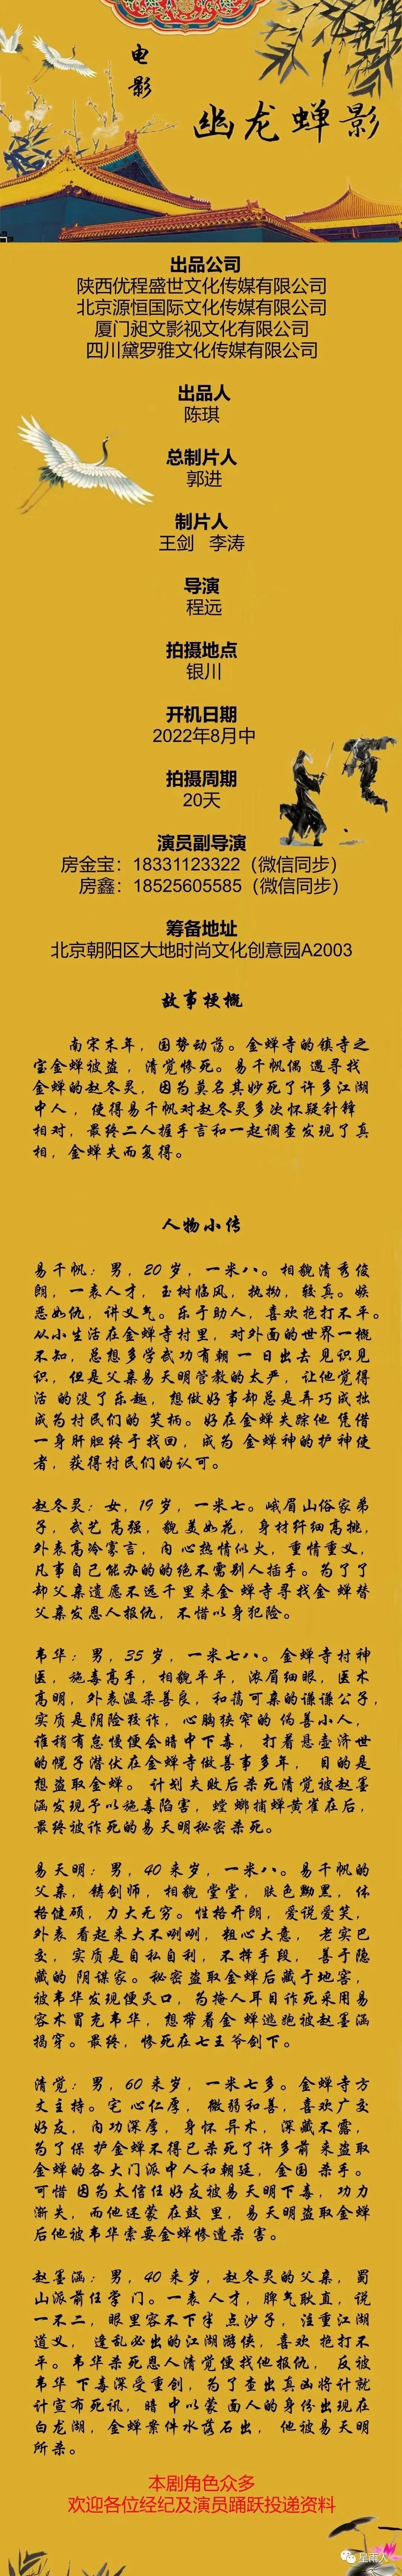 电
影
幽龙蝉影
出品公司
陕西优程盛世文化传媒有限公司
北京源恒国际文化传媒有限公司
厦门昶文影视文化有限公司
四川黛罗雅文化传媒有限公司
出品人
陈琪
总制片人
郭进
制片人
王剑 李涛
导演
程远
拍摄地点
银川
开机日期
2022年8月中
拍摄周期
20天
演员副导演
房金宝：18331123322（微信同步）
房鑫：18525605585（微信同步）
筹备地址
北京朝阳区大地时尚文化创意园A2003
故事梗概
南宋末年，国势动荡。金蝉寺的镇寺之
宝金蝉被盗，清觉惨死。易千帆偶 遇寻找
金蝉的赵冬灵，因为莫名其妙死了许多江湖
中人，使得易千帆对赵冬灵多次怀疑针锋
相对，最终二人握手言和一起调查发现了真
相，金蝉失而复得。
人物小传
易千帆：男，20 岁，一米八。相貌清秀俊
朗，一表人才，玉树临风，执拗，较真。嫉
恶如仇，讲义气。乐于助人，喜欢抱打不平。
从小生活在金蝉寺村里，对外面的世界一概
不知，总想多学武功有朝 一日出去 见识见
识，但是父亲易天明管教的太严，让他觉得
活 的没了乐趣，想做好事却总是弄巧成拙
成为村民们的 笑柄。好在金蝉失踪他 凭借
一身肝胆终于找回，成为 金蝉神的护神使
者，获得村民们的认可。
赵冬灵：女，19 岁，一米七。峨眉山俗家弟
子，武艺 高强，貌 美如花，身材纤细高挑，
外表高冷寡言，内 心热情似火，重情重义，
凡事自己能办的的绝不需别人插手。为了了
却父亲遗愿不远千里来金 蝉寺寻找金 蝉替
父亲发恩人报仇，不惜以身犯险。
韦华：男，35 岁，一米七八。金蝉寺村神
医，施毒高手，相貌平平，浓眉细眼，医术
高明，外表温柔善良，和蔼可亲的谦谦公子，
实质是阴险狡诈，心胸狭窄的 伪善小人，
谁稍有怠慢便会暗中下毒， 打着悬壶济世
的幌子潜伏在金蝉寺做善事多年， 目的是
想盗取金蝉。 计划失败后杀死清觉被赵墨
涵发现予以施毒陷害，螳 螂捕蝉黄雀在后，
最终被诈死的易天明秘密杀死。
易天明：男，40 来岁，一米八。易千帆的
父亲，铸剑师，相貌 堂堂，肤色黝黑，体
格健硕，力大无穷。性格开朗，爱说爱笑，
外表 看起来大不咧咧，粗心大意， 老实巴
交，实质是自私自利，不择手段， 善于隐
藏的 阴谋家。秘密盗取金蝉后藏于地窖，
被韦华发现便灭口，为掩人耳目诈死采用易
容术冒充韦华，想带着金 蝉逃跑被赵墨涵
揭穿。最终，惨死在七王爷剑下。
清觉：男，60 来岁，一米七多。金蝉寺方
丈主持。宅 心仁厚， 微弱和善，喜欢广交
好友，内功深厚，身怀 异术，深藏不露，
为了保 护金蝉不得已杀死了许多前 来盗取
金蝉的各大门派中人和朝廷，金国 杀手。
可惜 因为太信任好友被易天明下毒，功力
渐失，而他还蒙 在鼓 里，易天明盗取金蝉
后他被韦华索要金蝉惨遭杀 害。
赵墨涵：男，40 来岁，赵冬灵的父亲，蜀
山派前任掌 门。一表 人才，脾气耿直，说
一不二，眼里容不下半 点沙子，注重江湖
道义， 逢乱必出的江湖游侠，喜欢 抱打不
平。韦华杀死恩人清觉便找他报仇， 反被
韦华 下毒深受重创，为了查出真凶将计就
计宣布死讯，暗 中以蒙 面人的身份出现在
白龙湖，金蝉案件水落石出， 他被易天明
所杀。
本剧角色众多
欢迎各位经纪及演员踊跃投递资料
星雨人